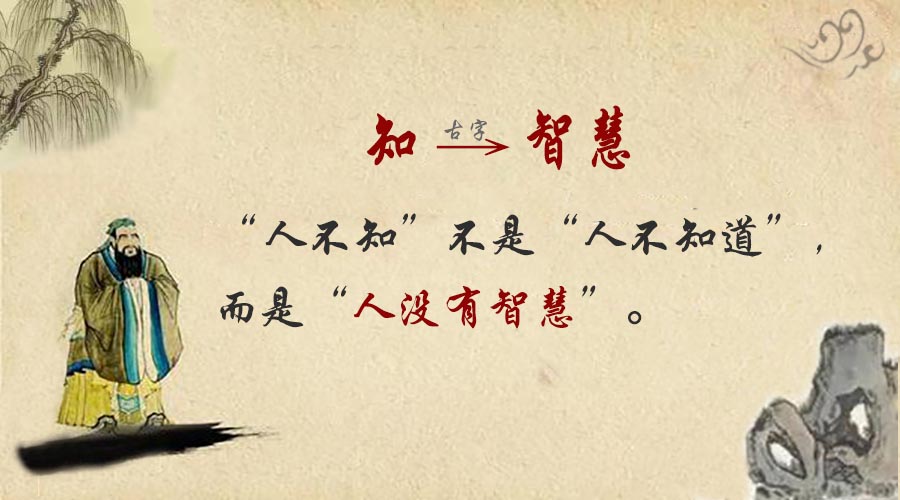 知 古字 → 智慧
“人不知”不是“人不知道”，
而是“人没有智慧”。